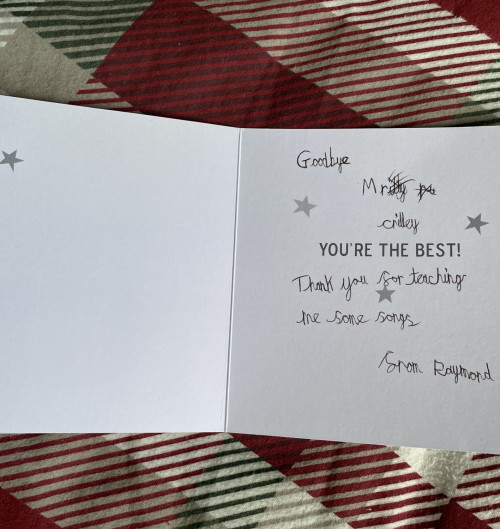 Goodbye
Mr
critley
YOU'RE THE BEST!
Thank you for teaching
me some songs
from Raymond